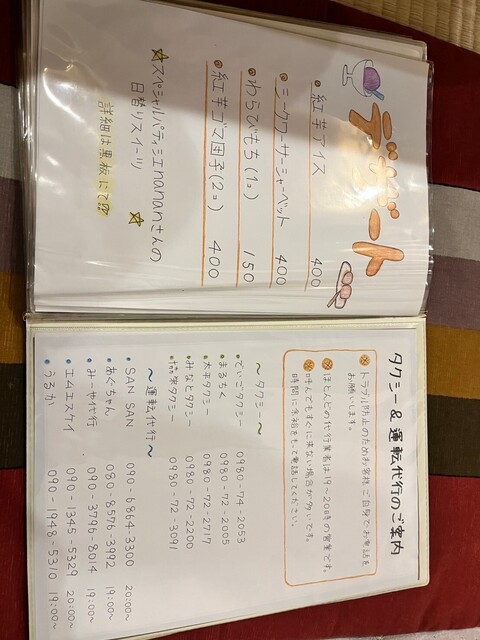 デザート
紅芋アイス 400
シークワーサーシャーベット 400
わらびもち(1コ) 150
紅芋ゴマ団子(2コ) 400
☆スペシャルパティシエnananさんの
日替りスイーツ☆
詳細は黒板にて
タクシー&運転代行のご案内
トラブル防止のためお客様ご自身でお電話を
お願いします。
ほとんどの代行業者は19~20時の営業です。
呼んでもすぐに来ない場合が多いです。
時間に余裕をもって電話してください。
~タクシー~
でいごタクシー 0980-74-2053
まるちく 0980-72-2005
太平タクシー 0980-72-2717
みなとタクシー 0980-72-2200
協栄タクシー 0980-72-3091
~運転代行~
SAN SAN 090-6864-3300 20:00~
あぐちゃん 080-8576-3992 19:00~
みーや代行 090-3796-8014 19:00~
エムエスケイ 090-1345-5329 20:00~
うるか 090-1948-5310 19:00~